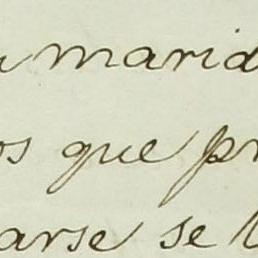 marid
os que pr
arse se